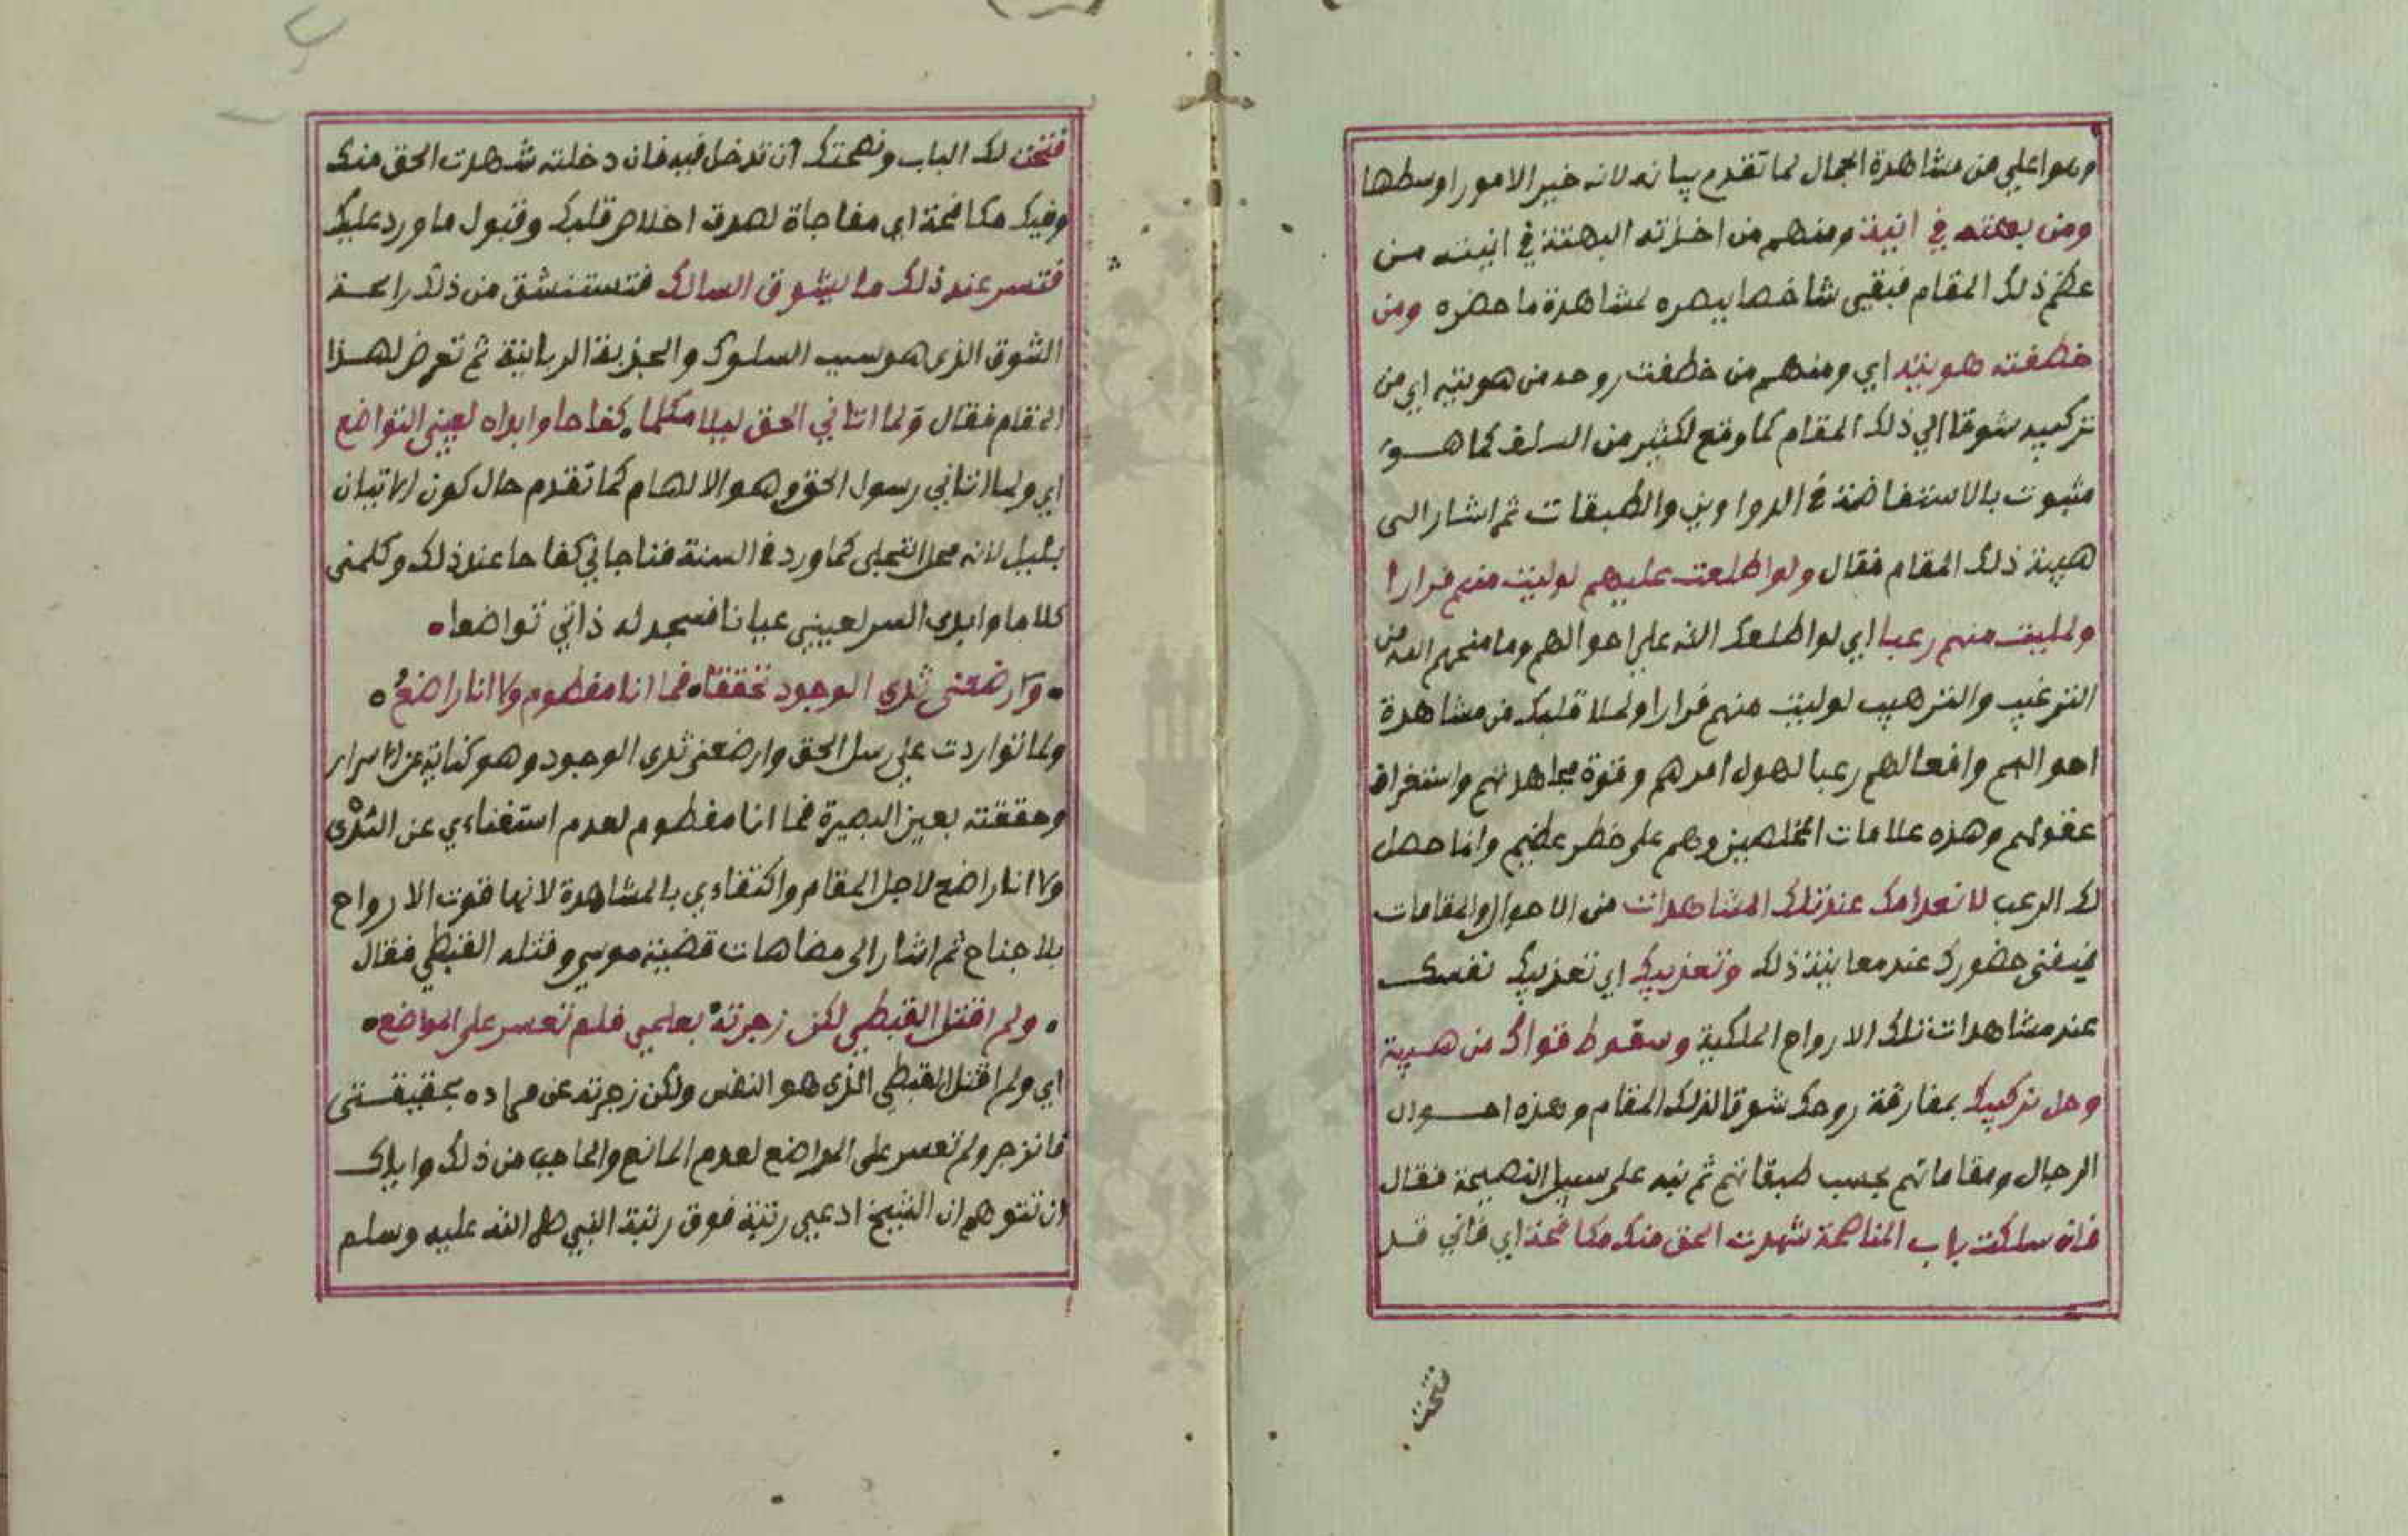 وهو اعلي من مشاهدة الجمال لما تقدم بيانه لانه خير الامور اوسطها
ومن بهتته في انيية ومنهم من اخذته البهتة في انيته من
عظم ذلك المقام فبقي شاخصا ببصره لمشاهدة ما حضره ومن
خطفته هويته اي ومنهم من خطفت روحه من هويته اي من
تركيبه شوقا الي ذلك المقام كما وقع لكثير من السلف كما هو
مثبوت بالاستفاضة في الدواوين والطبقات ثم اشار الى
هيبة ذلك المقام فقال ولو اطلعت عليهم لوليت منهم فرارا
ولمليت منهم رعبا اي لو اطلعك الله علي احوالهم وما منحهم الله من
الترغيب والترهيب لوليت منهم فرارا ولملا قلبك من مشاهدة
احوالهم وافعالهم رعبا لهول امرهم وقوة مجاهدتهم واستغراق
عقولهم وهذه علامات المخلصين وهم على خطر عظيم وانما حصل
لك الرعب لانعدامك عند تلك المشاهدات من الاحوال والمقامات
فيفنى حضورك عند معاينة ذلك وتعذيبك اي تعذيبك نفسك
عند مشاهدات تلك الارواح الملكية وسقوط قواك من هيبة
وحل تركيبك بمفارقة روحك شوقا لذلك المقام وهذه احوال
الرجال ومقاماتهم بحسب طبقاتهم ثم نبه على سبيل النصيحة فقال
فان سلكت باب المناصحة شهدت الحق منك مكافحة اي فاني قد
فتحت
فتحت لك الباب ونصحتك ان تدخل فيه فان دخلته شهدت الحق منك
وفيك مكافحة اي مفاجاة لصدق اخلاص قلبك وقبول ما ورد عليك
فتسر عند ذلك ما يشوق السالك فتستنشق من ذلك رايحة
الشوق الذى هو سبب السلوك والجذبة الربانية ثم تعرض لهذا
المقام فقال ولما اتاني الحق ليلا مكلما كفاحا وابداه لعيني التواضع
اي ولما اتاني رسول الحق وهو الالهام كما تقدم حال كون الاتيان
بليل لانه محل التجلى كما ورد في السنة فناجاني كفاحا عند ذلك وكلمنى
كلاما وابدى السر لعيني عيانا فسجد له ذاتي تواضعا
وارضعنى ثدي الوجود تحققا فما انا مفطوم ولا انا راضع
ولما تواردت علي رسل الحق وارضعنى ثدى الوجود وهو كناية عن الاسرار
وحققته بعين البصيرة فما انا مفطوم لعدم استغناءي عن الثدْى
ولا انا راضع لاجل المقام واكتفاءي بالمشاهدة لانها قوت الارواح
بلا جناح ثم اشار الى مضاهات قضية موسي وقتله القبطي فقال
ولم اقتل القبطي لكن زجرته بعلمي فلم تعسر على المواضع
اي ولم اقتل القبطي الذى هو النفس ولكن زجرته عن مراده بحقيقتى
فانزجر ولم تعسر على المواضع لعدم المانع والحاجب من ذلك واياك
ان تتوهم ان الشيخ ادعي رتبة فوق رتبة النبي صلى الله عليه وسلم